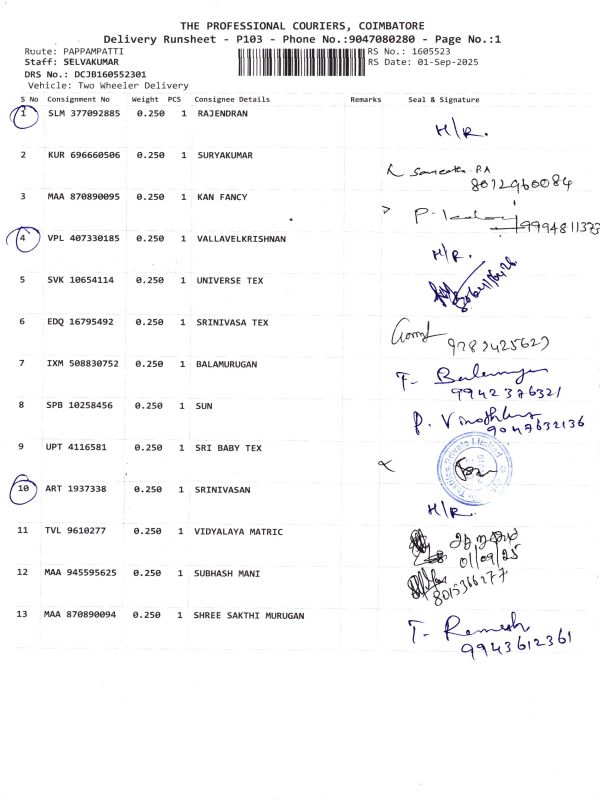 THE PROFESSIONAL COURIERS, COIMBATORE
Delivery Runsheet - P103 - Phone No.:9047080280 - Page No.:1
Route: PAPPAMPATTI RS No.: 1605523
Staff: SELVAKUMAR RS Date: 01-Sep-2025
DRS No.: DCJB160552301
Vehicle: Two Wheeler Delivery
S No Consignment No Weight PCS Consignee Details Remarks Seal & Signature
1 SLM 377092885 0.250 1 RAJENDRAN
H/R.
2 KUR 696660506 0.250 1 SURYAKUMAR
8012960084
3 MAA 870890095 0.250 1 KAN FANCY
9994811373
4 VPL 407330185 0.250 1 VALLAVELKRISHNAN
H/R.
5 SVK 10654114 0.250 1 UNIVERSE TEX
6 EDQ 16795492 0.250 1 SRINIVASA TEX
7 IXM 508830752 0.250 1 BALAMURUGAN
T. Balamurugan
9942376321
8 SPB 10258456 0.250 1 SUN
P. Vinothkumar
9047632136
9 UPT 4116581 0.250 1 SRI BABY TEX
Private Limited
10 ART 1937338 0.250 1 SRINIVASAN
H/R.
11 TVL 9610277 0.250 1 VIDYALAYA MATRIC
01/09/25
12 MAA 945595625 0.250 1 SUBHASH MANI
8015366277
13 MAA 870890094 0.250 1 SHREE SAKTHI MURUGAN
T- Ramesh
9943612361